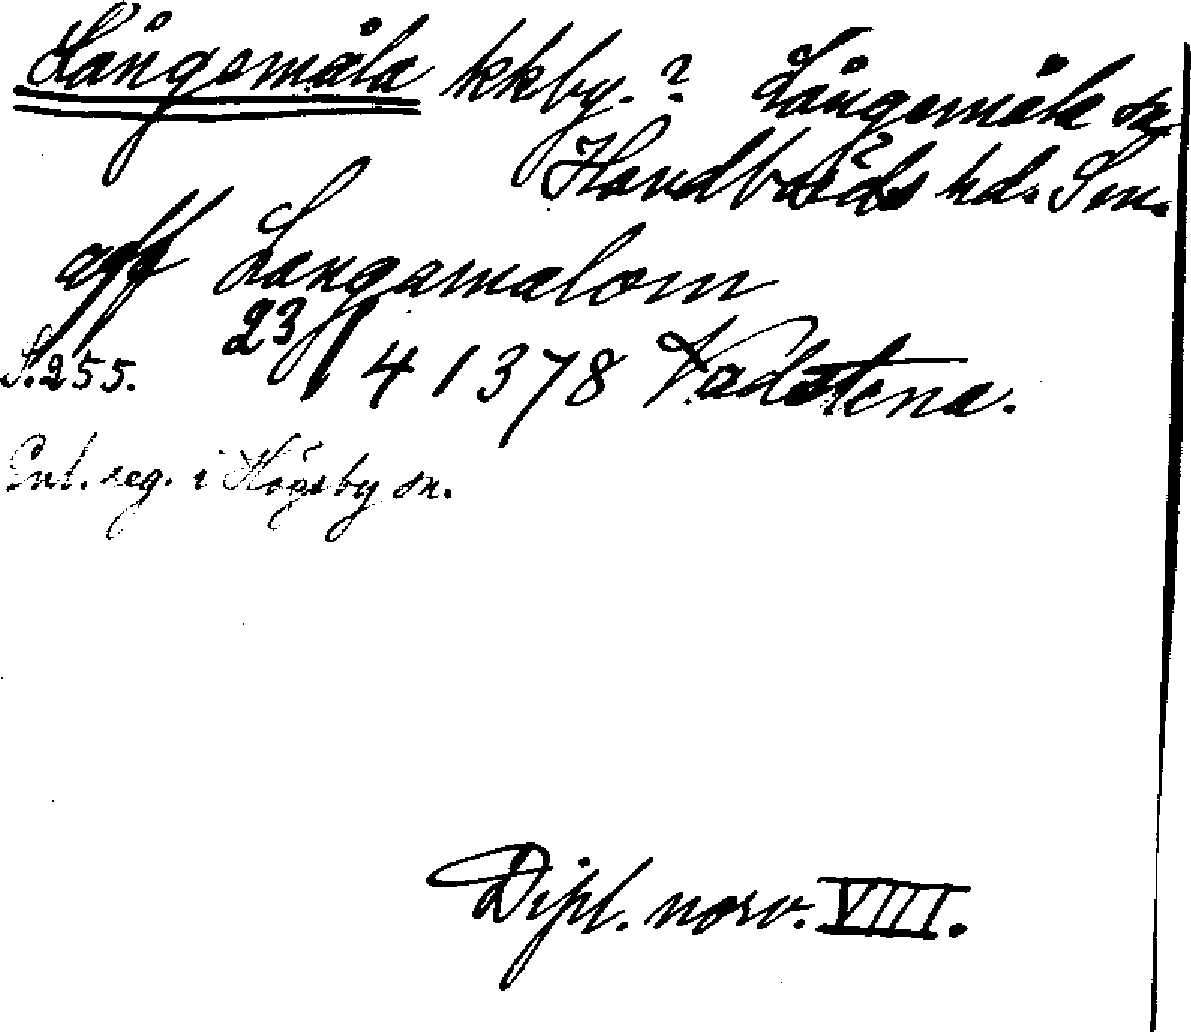 Långemåla kkby.? Långemåla sn
Handbörds hd. Sm.
aff Langamalom
S. 255. 23/4 1378 Vadstena.
Enl. reg. i Högsby sn.
Dipl. norv. VIII.